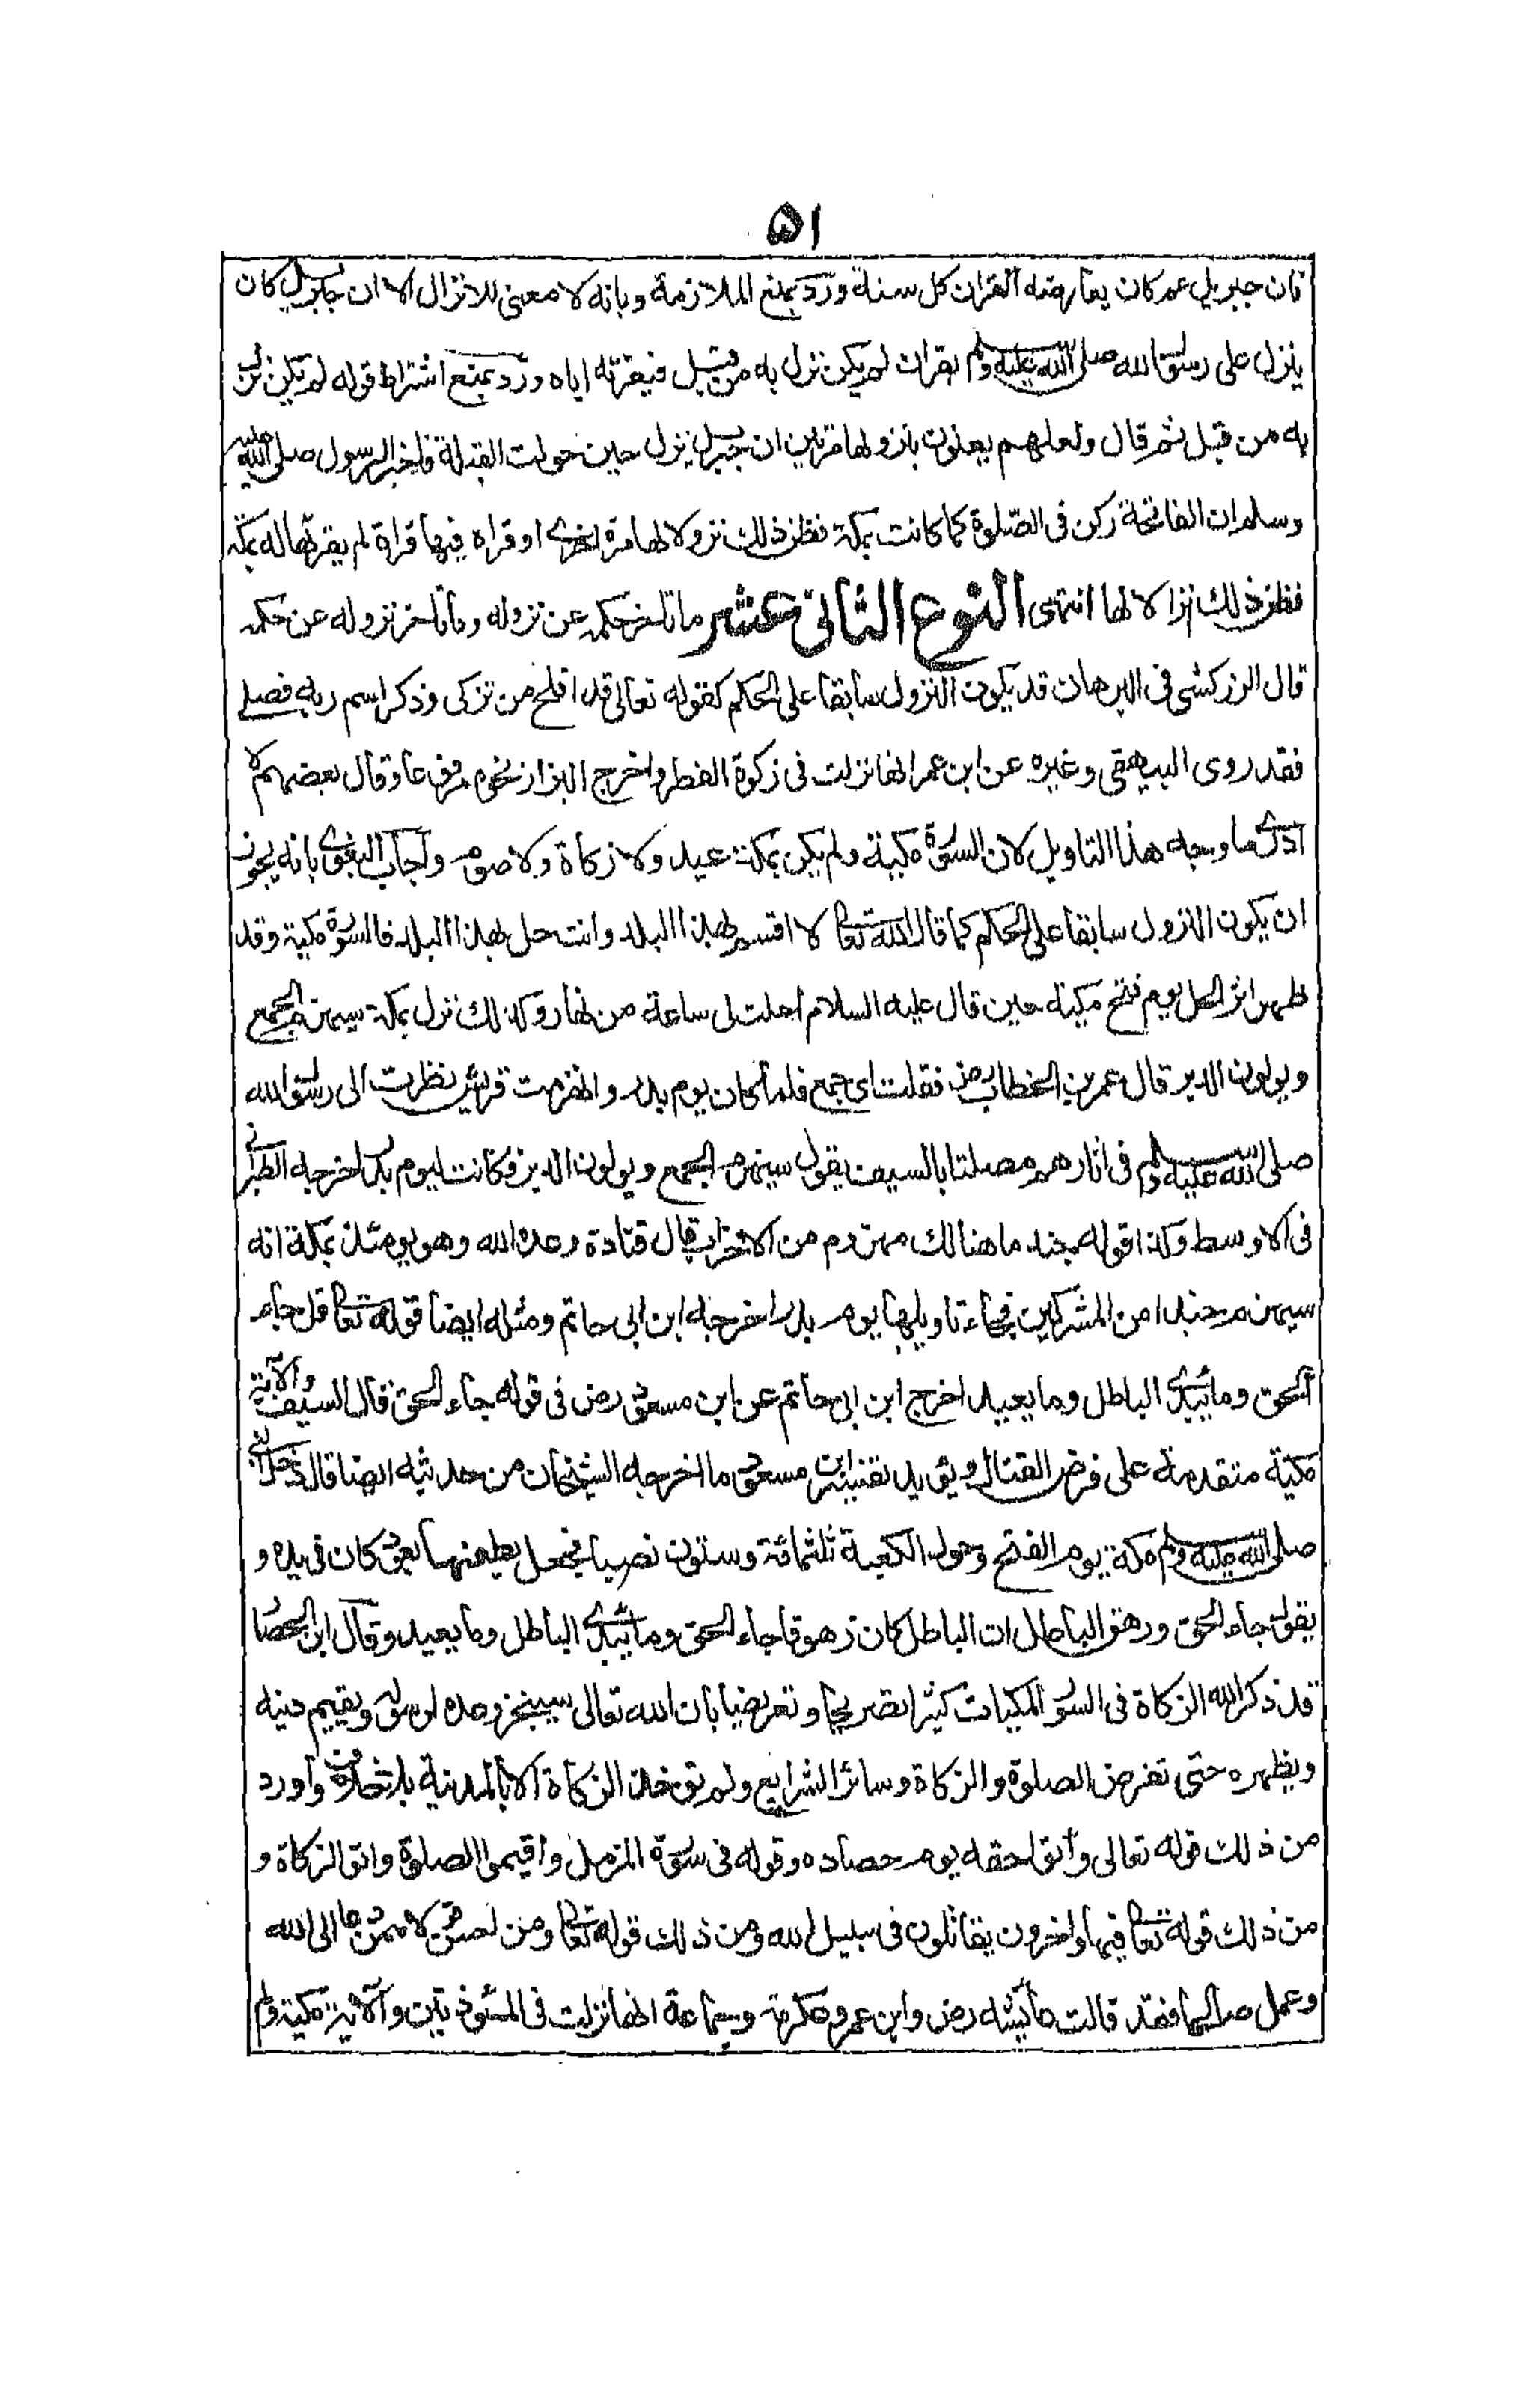 ۵۱
فان جبريل عم كان يعارضه القران كل سنة ورد بمنع الملازمة وبانه لا معنى للانزال الا ان جبريل كان
ينزل على رسول الله صلى الله عليه ولم بقران لم يكن نزل به من قبل فيقرئه اياه ورد بمنع اشتراط قوله لم يكن نزل
به من قبل ثم قال ولعلهم يعنون بنزولها مرتين ان جبريل نزل حين حولت القبلة فاخبر الرسول صلى الله عليه
وسلم ان الفاتحة ركن فى الصلوة كما كانت بمكة فظن ذلك نزولا لها مرة اخرى او قراه فيها قراة لم يقرئها له بمكة
فظن ذلك نزالا لها انتهى النوع الثانى عشر ما تاخر حكمه عن نزوله وما تاخر نزوله عن حكمه
قال الزركشى فى البرهان قد يكون النزول سابقا على الحكم كقوله تعالى قد افلح من تزكى وذكر اسم ربه فصلى
فقد روى البيهقى وغيره عن ابن عمر انها نزلت فى زكوة الفطر واخرج البزاز نحوه مرفوعا وقال بعضهم لا
ادرى ما وجه هذا التاويل لان السورة مكية ولم يكن بمكة عيد ولا زكاة ولا صوم واجاب البغوى بانه يجوز
ان يكون النزول سابقا على الحكم كما قال الله تعا لا اقسم بهذا البلد وانت حل بهذا البلد فالسورة مكية وقد
ظهر اثر الحل يوم فتح مكية حين قال عليه السلام احلت لى ساعة من نهار وكذلك نزل بمكة سيهزم الجمع
ويولون الدبر قال عمر بن الخطاب رض فقلت اى جمع فلما كان يوم بدر وانهزمت قريش نظرت الى رسول الله
صلى الله عليه ولم فى اثارهم مصلتا بالسيف يقول سيهزم الجمع ويولون الدبر وكانت ليوم بدر اخرجه الطبرانى
فى الاوسط وكذا قوله جند ما هنالك مهزوم من الاحزاب قال قتادة وعده الله وهو يومئذ بمكة انه
سيهزم جندا من المشركين فجاء تاويلها يوم بدر اخرجه ابن ابى حاتم ومثله ايضا قوله تعا قل جاء
الحق وما يبدى الباطل وما يعيد اخرج ابن ابى حاتم عن ابن مسعود رض فى قوله جاء الحق قال السيف والاية
مكية متقدمة على فرض القتال ويؤيد تفسير ابن مسعود ما اخرجه الشيخان من حديثه ايضا قال دخل النبى
صلى الله عليه ولم مكة يوم الفتح وحول الكعبة ثلثمائة وستون نصبا فجعل يطعنها بعود كان فى يده و
يقول جاء الحق وزهق الباطل ان الباطل كان زهوقا جاء الحق وما يبدى الباطل وما يعيد وقال ابن الحصا
قد ذكر الله الزكاة فى السور المكيات كثيرا تصريحا وتعريضا بان الله تعالى سينجز وعده لرسوله ويقيم دينه
ويظهره حتى تفرض الصلوة والزكاة وسائر الشرايع ولم توخذ الزكاة الا بالمدينة بلا خلاف واورد
من ذلك قوله تعالى واتوا حقه يوم حصاده وقوله فى سورة المزمل واقيموا الصلوة واتوا الزكاة و
من ذلك قوله تعا فيها واخرون يقاتلون فى سبيل الله ومن ذلك قوله تعا ومن احسن قولا ممن دعا الى الله
وعمل صالحا فقد قالت عائيشه رض وابن عمر وعكرمة وجماعة انها نزلت فى المئوذنين والاية مكية ولم